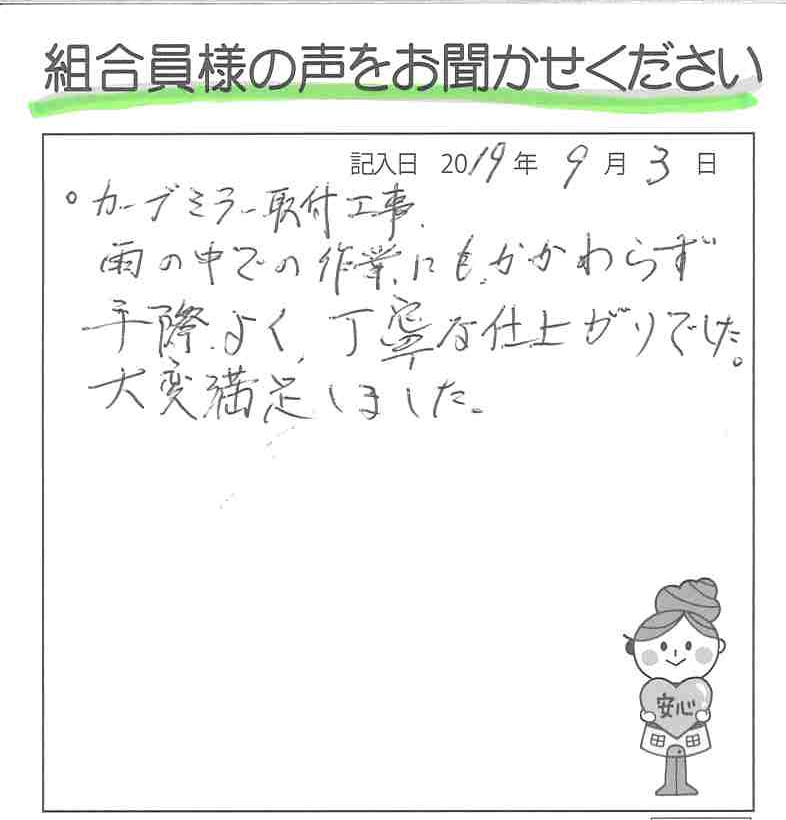 組合員様の声をお聞かせください
記入日 2019年 9月 3日
。カーブミラー取付工事.
雨の中での作業にもかかわらず
手際よく、丁寧な仕上がりでした。
大変満足しました。
安心